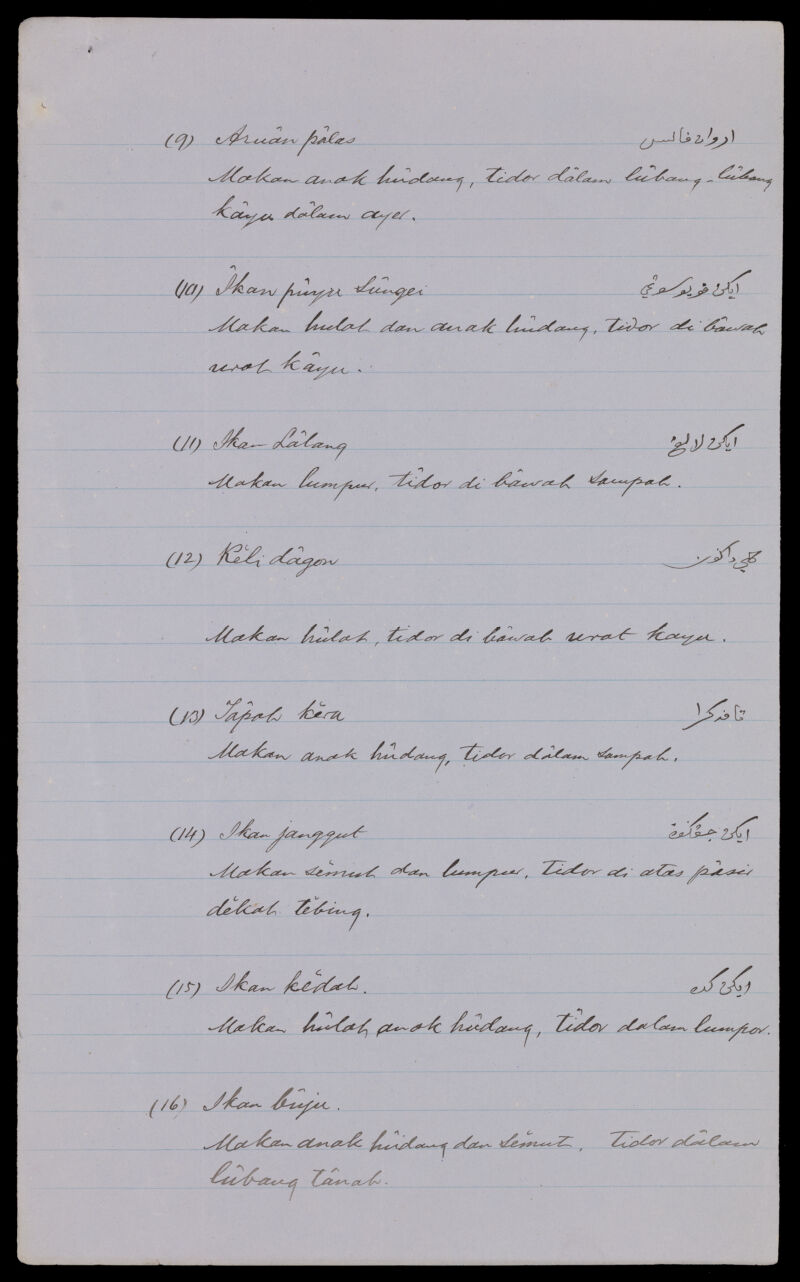 (9) Aruân pâlas اروان فالس
Makan anak hûdang, tidor dâlam lûbang-lûbang
kâyu dâlam ayer.
(10) Îkan pûyu sûngei ايكن فويو سوڠي
Makan hulat dan anak hûdang, tidor di bâwah
urat kâyu.
(11) Ikan Lâlang ايكن لالڠ
Makan lumpur, tîdor di bâwah sampah.
(12) Kĕli dâgon كلي داكون
Makan hûlat, tidor di bâwah urat kayu.
(13) Tâpah kĕra تافه كرا
Makan anak hûdang, tidor dâlam sampah.
(14) Ikan janggut ايكن جڠكوت
Makan sĕmut dan lumpur, tidor di atas pâsir
dĕkat tĕbing.
(15) Ikan kĕdah. ايكن كده
Makan hûlat, anak hûdang, tîdor dalam lumpor.
(16) Ikan bûju.
Makan anak hûdang dan sĕmut, tidor dâlam
lûbang tânah.